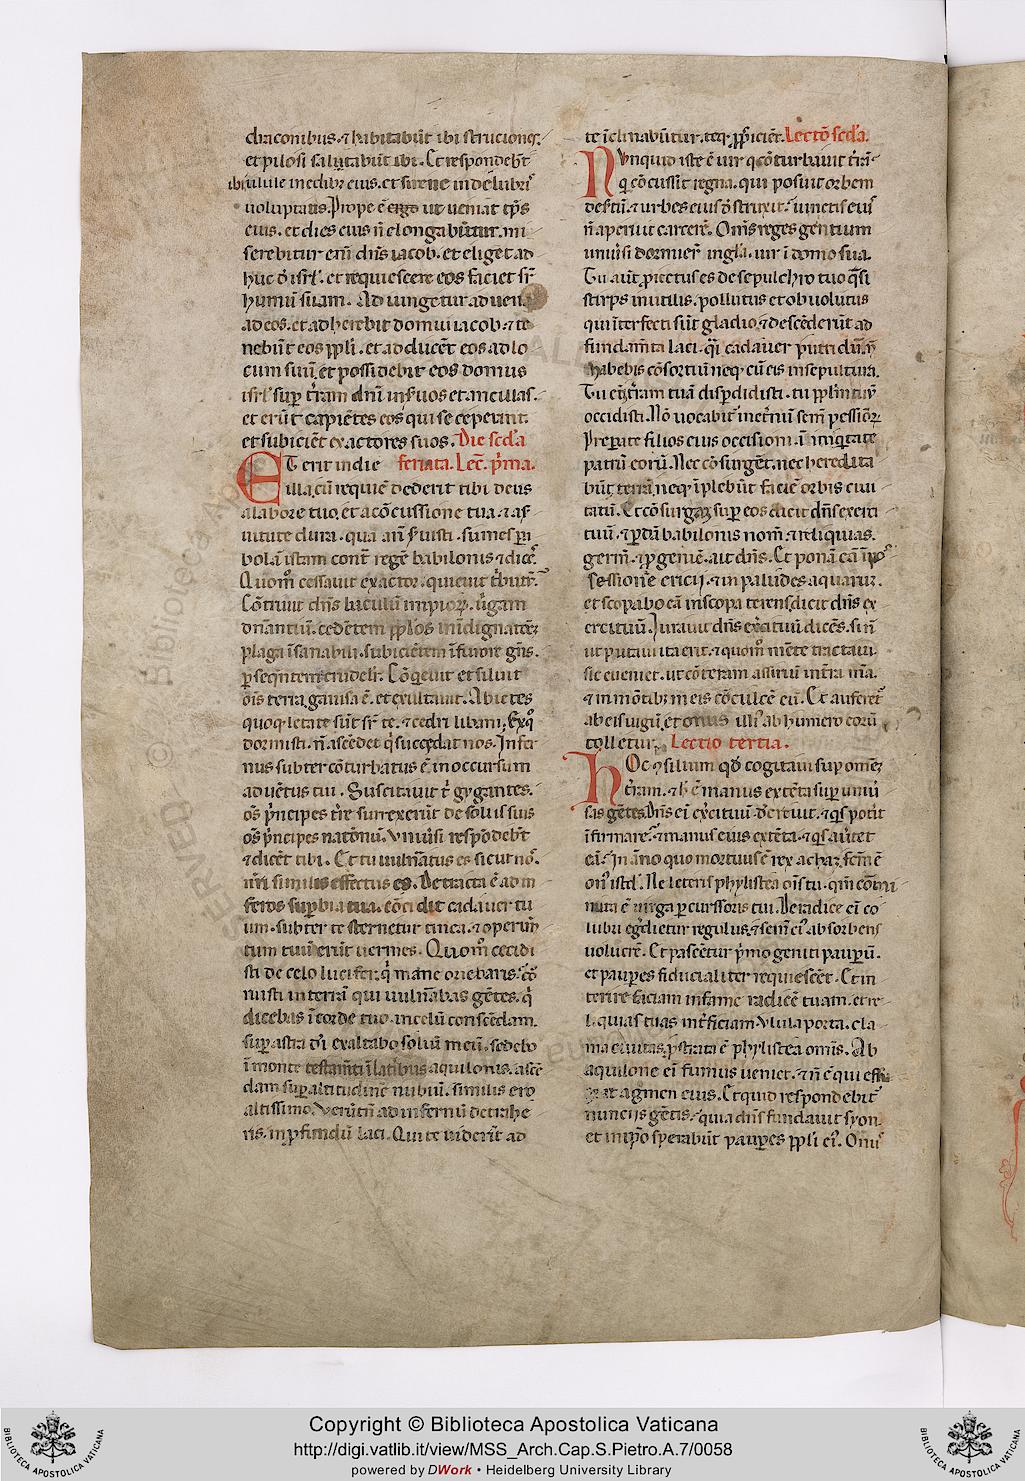 draconibus. ⁊ habitabūt ibi strucionꝫ.
et pilosi saltabūt ibi. Et respondebt̄
ibi ulule in edibꝫ eius. et sirene in delubrꝭ
uoluptatis. Prope ē ergo ut ueniat tp̄s
eius. et dies eius n̄ elongabūtur. mi
serebitur eni dn̄s iacob. et eliget ad
huc d isrl. et requiescere eos faciet sr̄
humū suam. Adiungetur aduena
ad eos. et adherebit domui iacob. ⁊ te
nebūt eos ppl̄i. et adducēt eos ad lo
cum suū. et possidebit eos domus
isrl̄ sup t̄ram dn̄i in ẜuos et ancillas.
et erūt capiētes eos qui se ceperant.
et subiciēt exactores suos. Die scd̄a
ET erit in die feriata. Lec̄. p̄ma.
illa. cū requiē dederit tibi deus
a labore tuo. et a cōcussione tua. ⁊ a ẜ
uitute dura. qua an̄ ẜuisti. sumes pa
bolā istam cont̄ regē babilonis ⁊ dicēˢ
Quomō cessauit exactor. quieuit t̄butū.
Cōtriuit dn̄s baculū impioꝝ. uirgam
dn̄antiū. cedētem ppl̄os in indignatōe
plaga īsanabili. subiciētem ī furore gn̄s.
psequntem crudelit̄. Cōqeuit et siluit
oīs terra. gauisa ē. et exultauit. Abietes
quoq letate sūt sr̄ te. ⁊ cedri libani. Ex qͦ
dormisti. n̄ ascēdet q̄ succedat nos. Infer
nus subter cōturbatus ē in occursum
aduētus tui. Suscitauit t̄ gygantes.
oīs p̄ncipes t̄re surrexerūt de soliis suis
oīs p̄ncipes nationū. Vniuersi respōdebt̄
⁊ dicēt tibi. Et tu uuln̄atus es sicut nos.
nr̄i similis effectus es. Detracta ē ad in
feros supbia tua. cōcidit cadauer tu
um. subter te sternetur tinea. ⁊ operim̄
tum tuū erūt uermes. Quomō cecidi
sti de celo lucifer. q̄ mane oriebaris. cor
ruisti in terrā qui uuln̄abas gētes. q̄
dicebas ī corde tuo. in celū conscēdam.
sup astra dī exaltabo soliū meū. sedebo
ī monte testam̄ti ī latibus aquilonis. ascē
dam sup altitudinē nubiū. similis ero
altissimo. Verūtn̄ ad infernū detrahe
ris. in pfundū laci. Qui te uiderīt ad
te īclinabūtur. teq ꝓspiciēt. Lectō scd̄a.
Nvnquid iste ē uir q cōturbauit t̄rā.
q cōcussit regna. qui posuit orbem
desertū. ⁊ urbes eius dstruxit. uinctis eiꝰ
n̄ aperuit carcerē. Om̄s reges gentium
uniuersi dormier̄ in gl̄a. uir ī domo sua.
Tu aut̄ ꝓiectus es de sepulchro tuo q̄si
stirps inutilis. pollutus et obuolutus
qui interfecti sūt gladio. ⁊ descēderūt ad
fundam̄ta laci. qͣi cadauer putridū. n̄
habebis cōsortiū neq cū eis in sepultura.
Tu eni t̄ram tuā disperdidisti. tu pplm̄ tuū
occidisti. Nō uocabit ī et̄nū sem̄ pessioꝝ
Preparate filios eius occisioni. ī iniqitate
patrū eorū. Nec cōsurgēt. nec heredita
būt terrā. neq īplebūt faciē orbis ciui
tatū. Et cōsurgaꝫ sup eos dicit dn̄s exerci
tuū. ⁊ pdā babilonis nom̄. ⁊ reliquias.
germ̄. ⁊ ꝓgeniē. ait dn̄s. Et ponā eā ī pos
sessionē ericij. ⁊ in paludes aquarū.
et scopabo eā in scopa terens dicit dn̄s ex
ercituū. Iurauit dn̄s exercituū dicēs. si n̄
ut putaui ita erit. ⁊ quomō mēte tractaui.
sic eueniet. ut cōteram assiriū in t̄ra mēa.
⁊ in mōtibꝫ meis cōculcē eū. Et auferet̄
ab eis iugū. et onus illiꝰ ab humero eorū
tolletur. Lectio tertia.
HOc ꝯsilium qd̄ cogitaui sup omēꝫ
t̄ram. ⁊ h ē manus extēta sup uniū
sas gētes. Dn̄s ei exercituū decreuit. ⁊ qͥs potit
īfirmare. ⁊ manus eius extēta. ⁊ qͥs au̇tet
eā. In anno quo mortuus ē rex achaz. fc̄m ē
onꝰ istd̄. Ne leteris phylistea oīs tu. qm̄ cōmi
nuta ē uirga pcussoris tui. De radice ei co
lubri egdietur regulus. ⁊ sem̄ eiꝰ absorbens
uolucrē. Et pascētur p̄mogeniti paupū.
et paupes fiducialiter requiescēt. Et in
terire faciam in fame radicē tuam. et re
liquias tuas int̄ficiam. Vlula porta. cla
ma ciuitas. pstrata ē phylistea omis. Ab
aquilone ei fumus ueniet. ⁊ n̄ ē qui effu
giat agmen eius. Et quid respondebit̄
nuncijs gētis. quia dn̄s fundauit syon.
et in ipo sperabūt paupes ppl̄i eiꝰ. Onus
Copyright © Biblioteca Apostolica Vaticana
http://digi.vatlib.it/view/MSS_Arch.Cap.S.Pietro.A.7/0058
powered by DWork • Heidelberg University Library
BIBLIOTECA APOSTOLICA VATICANA
BIBLIOTECA APOSTOLICA VATICANA